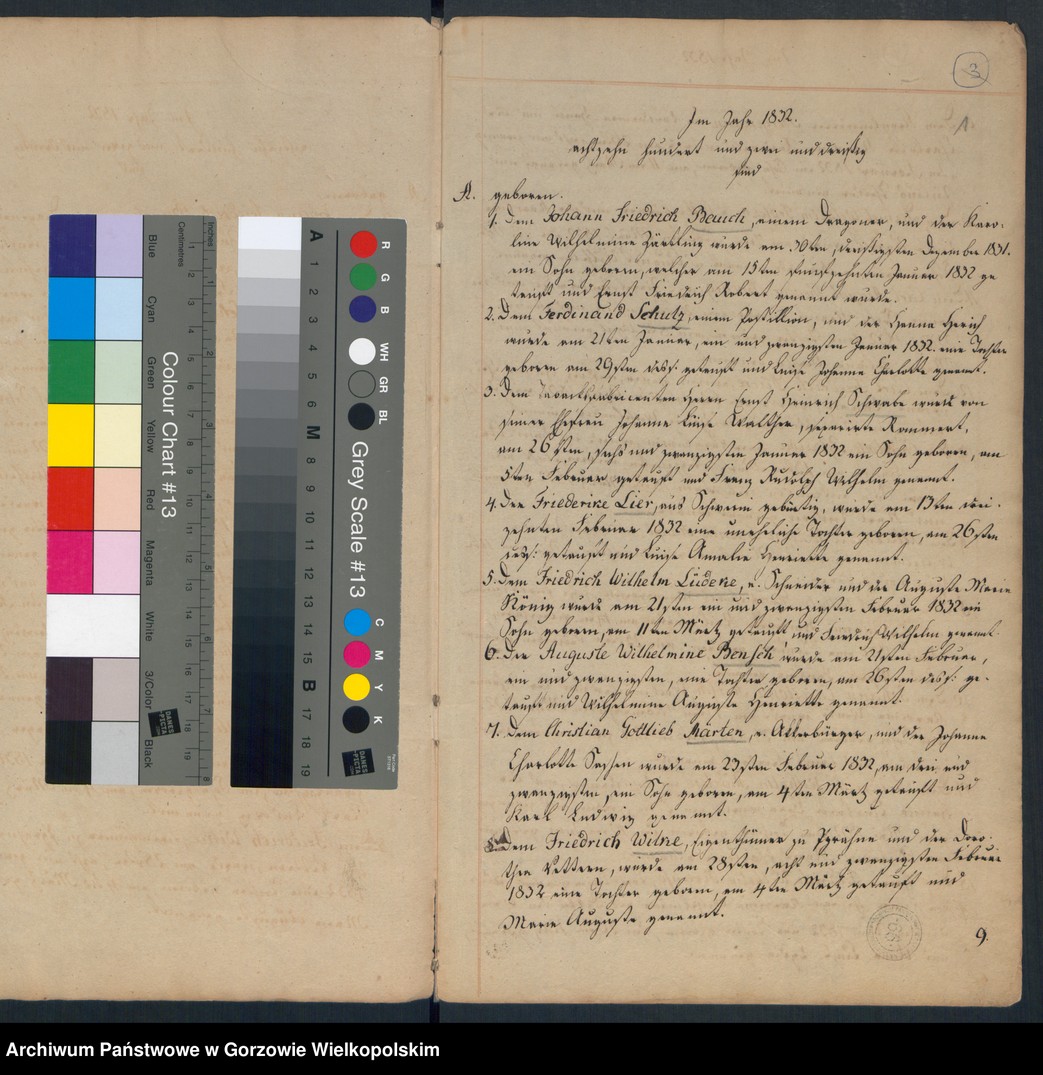 3
1
Im Jahr 1832.
achtzehn hundert und zwei und dreißig
sind
A. geboren.
1. Dem Johann Friedrich Bauch, einem Dragoner, und der Karo-
line Wilhelmine Zärtling wurde am 30ten, dreißigsten Dezember 1831.
ein Sohn geboren, welcher am 15ten funfzehnten Januar 1832 ge
tauft und Ernst Friedrich Robert genannt wurde.
2. Dem Ferdinand Schutz, einem Postillion, und der Hanna Herich
wurde am 21ten Januar, ein und zwanzigsten Januar 1832. eine Tochter
geboren am 29sten dess: getauft und Luise Johanne Charlotte genannt.
3. Dem Herrn Ernst Heinrich Schwabe wurde von
seiner Ehefrau Johanne Luise Walther, separirte Rommert,
am 26sten, sechs und zwanzigsten Januar 1832 ein Sohn geboren, am
5ten Februar getauft und Franz Rudolph Wilhelm genannt.
4. Der Friederike Lier, aus Schwerin gebürtig, wurde am 13ten drei-
zehnten Februar 1832 eine uneheliche Tochter geboren, am 26sten
dess: getauft und Luise Amalie Henriette genannt.
5. Dem Friedrich Wilhelm Lüdeke, e. Schneider und der Auguste Marie
König wurde am 21sten ein und zwanzigsten Februar 1832 ein
Sohn geboren, am 11ten März getauft und Friedrich Wilhelm genannt.
6. Der Auguste Wilhelmine Bensch wurde am 21sten Februar,
ein und zwanzigsten, eine Tochter geboren, am 26sten dess: ge-
tauft und Wilhelmine Auguste Henriette genannt.
7. Dem Christian Gottlieb Märten, e. Ackerbürger, und der Johanne
Charlotte Sachsen wurde am 23sten Februar 1832, am drei und
zwanzigsten, ein Sohn geboren, am 4ten März getauft und
Karl Ludwig genannt.
8. Dem Friedrich Wilke, Eigenthümer zu Pyrähne und der Doro-
thea Vettern, wurde am 28sten, acht und zwanzigsten Februar
1832 eine Tochter geboren, am 4ten März getauft und
Marie Auguste genannt.
9.
Colour Chart #13
Blue
Cyan
Green
Yellow
Red
Magenta
White
3/Color
Black
Centimetres
Inches
DANES PICTA
Grey Scale #13
A 1 2 3 4 5 6 M 8 9 10 11 12 13 14 15 B 17 18 19
R G B WH GR BL
C M Y K
DANES PICTA
Archiwum Państwowe w Gorzowie Wielkopolskim